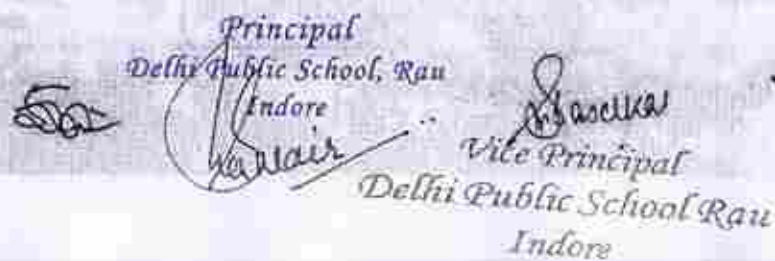 Principal
Delhi Public School, Rau
Indore
Vice Principal
Delhi Public School Rau
Indore